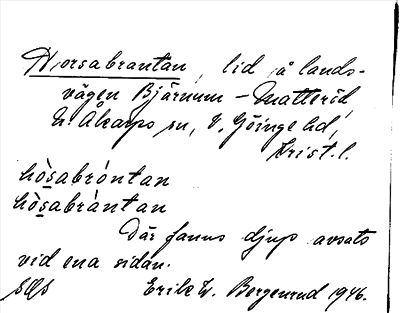 Horsabrantan, lid å lands-
vägen Bjärnum – Matteröd,
N. Åkarps sn, V. Göinge hd,
Krist. l.
hòsabróntan
hòsabràntan
Där fanns djup avsats
vid ena sidan.
Erik W. Bergenrud 1946.